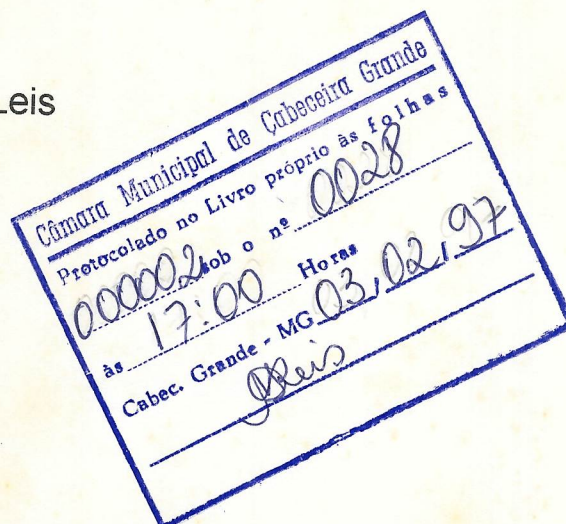 Leis
Câmara Municipal de Cabeceira Grande
Protocolado no Livro próprio às folhas
000002, sob o nº 0028
às 17:00 Horas
Cabec. Grande - MG 03, 02, 97
Reis